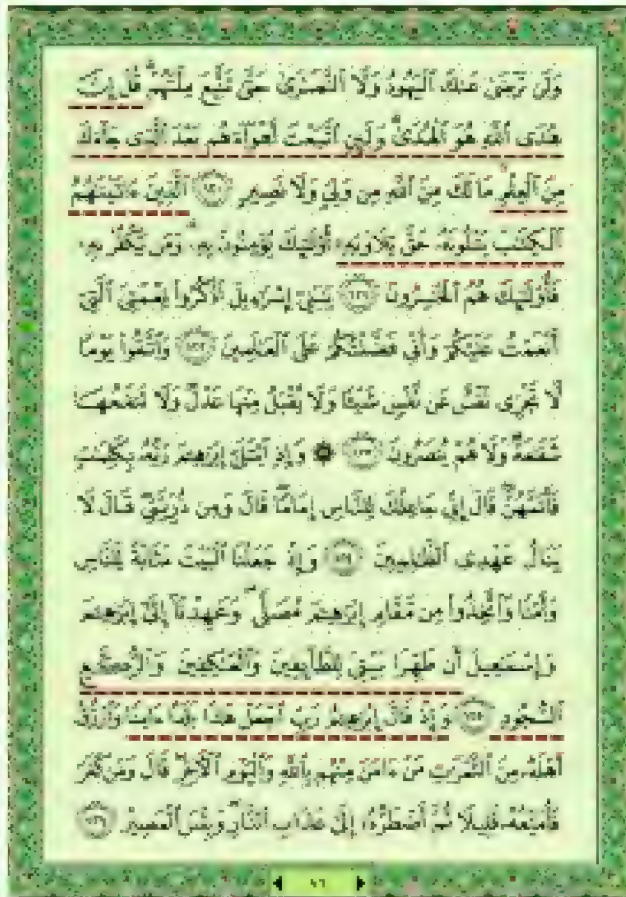 وَلَن تَرْضَىٰ عَنكَ ٱلْيَهُودُ وَلَا ٱلنَّصَٰرَىٰ حَتَّىٰ تَتَّبِعَ مِلَّتَهُمْ ۗ قُلْ إِنَّ
هُدَى ٱللَّهِ هُوَ ٱلْهُدَىٰ ۗ وَلَئِنِ ٱتَّبَعْتَ أَهْوَآءَهُم بَعْدَ ٱلَّذِى جَآءَكَ
مِنَ ٱلْعِلْمِ ۙ مَا لَكَ مِنَ ٱللَّهِ مِن وَلِىٍّ وَلَا نَصِيرٍ ١٢٠ ٱلَّذِينَ ءَاتَيْنَٰهُمُ
ٱلْكِتَٰبَ يَتْلُونَهُۥ حَقَّ تِلَاوَتِهِۦٓ أُو۟لَٰٓئِكَ يُؤْمِنُونَ بِهِۦ ۗ وَمَن يَكْفُرْ بِهِۦ
فَأُو۟لَٰٓئِكَ هُمُ ٱلْخَٰسِرُونَ ١٢١ يَٰبَنِىٓ إِسْرَٰٓءِيلَ ٱذْكُرُوا۟ نِعْمَتِىَ ٱلَّتِىٓ
أَنْعَمْتُ عَلَيْكُمْ وَأَنِّى فَضَّلْتُكُمْ عَلَى ٱلْعَٰلَمِينَ ١٢٢ وَٱتَّقُوا۟ يَوْمًا
لَّا تَجْزِى نَفْسٌ عَن نَّفْسٍ شَيْـًٔا وَلَا يُقْبَلُ مِنْهَا عَدْلٌ وَلَا تَنفَعُهَا
شَفَٰعَةٌ وَلَا هُمْ يُنصَرُونَ ١٢٣ ۞ وَإِذِ ٱبْتَلَىٰٓ إِبْرَٰهِۦمَ رَبُّهُۥ بِكَلِمَٰتٍ
فَأَتَمَّهُنَّ ۖ قَالَ إِنِّى جَاعِلُكَ لِلنَّاسِ إِمَامًا ۖ قَالَ وَمِن ذُرِّيَّتِى ۖ قَالَ لَا
يَنَالُ عَهْدِى ٱلظَّٰلِمِينَ ١٢٤ وَإِذْ جَعَلْنَا ٱلْبَيْتَ مَثَابَةً لِّلنَّاسِ
وَأَمْنًا وَٱتَّخِذُوا۟ مِن مَّقَامِ إِبْرَٰهِۦمَ مُصَلًّى ۖ وَعَهِدْنَآ إِلَىٰٓ إِبْرَٰهِۦمَ
وَإِسْمَٰعِيلَ أَن طَهِّرَا بَيْتِىَ لِلطَّآئِفِينَ وَٱلْعَٰكِفِينَ وَٱلرُّكَّعِ
ٱلسُّجُودِ ١٢٥ وَإِذْ قَالَ إِبْرَٰهِۦمُ رَبِّ ٱجْعَلْ هَٰذَا بَلَدًا ءَامِنًا وَٱرْزُقْ
أَهْلَهُۥ مِنَ ٱلثَّمَرَٰتِ مَنْ ءَامَنَ مِنْهُم بِٱللَّهِ وَٱلْيَوْمِ ٱلْءَاخِرِ ۖ قَالَ وَمَن كَفَرَ
فَأُمَتِّعُهُۥ قَلِيلًا ثُمَّ أَضْطَرُّهُۥٓ إِلَىٰ عَذَابِ ٱلنَّارِ ۖ وَبِئْسَ ٱلْمَصِيرُ ١٢٦